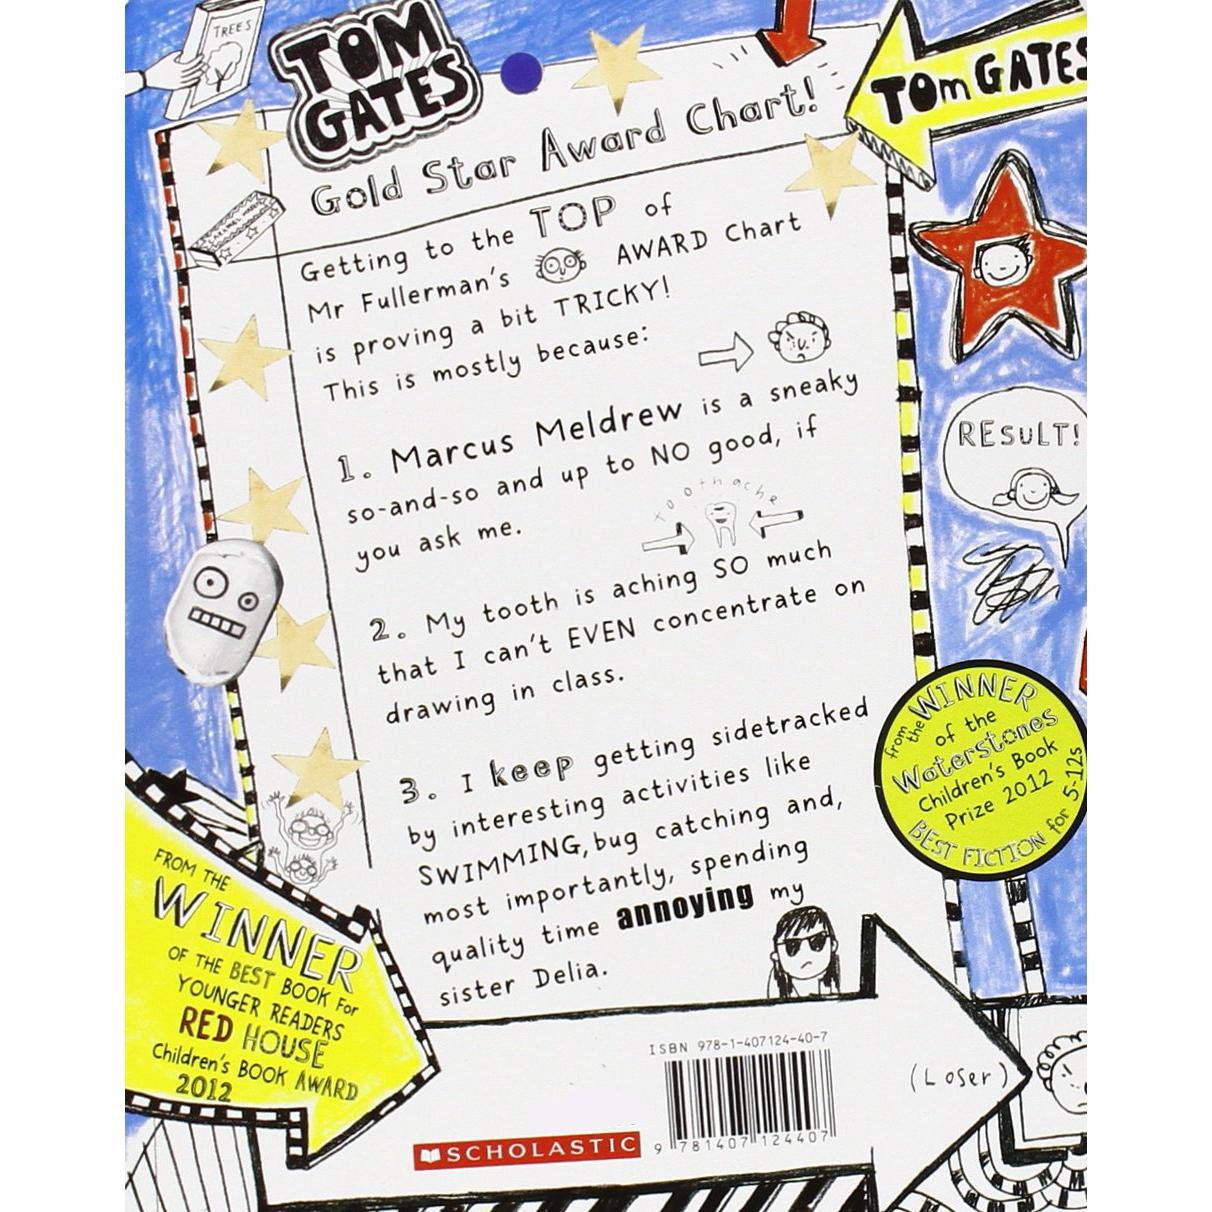 TREES
TOM
GATES
TOm GATES
Gold Star Award Chart!
Getting to the TOP of
Mr Fullerman's AWARD Chart
is proving a bit TRICKY!
This is mostly because:
1. Marcus Meldrew is a sneaky
so-and-so and up to NO good, if
you ask me.
Toothache
2. My tooth is aching SO much
that I can't EVEN concentrate on
drawing in class.
3. I keep getting sidetracked
by interesting activities like
SWIMMING, bug catching and,
most importantly, spending
quality time annoying my
sister Delia.
RESULT!
from the WINNER
of the
Waterstones
Children's Book
Prize 2012
BEST FICTION for 5-12s
FROM THE
WINNER
OF THE BEST BOOK For
YOUNGER READERS
RED HOUSE
Children's BOOK AWARD
2012
ISBN 978-1-407124-40-7
9 781407 124407
(Loser)
SCHOLASTIC